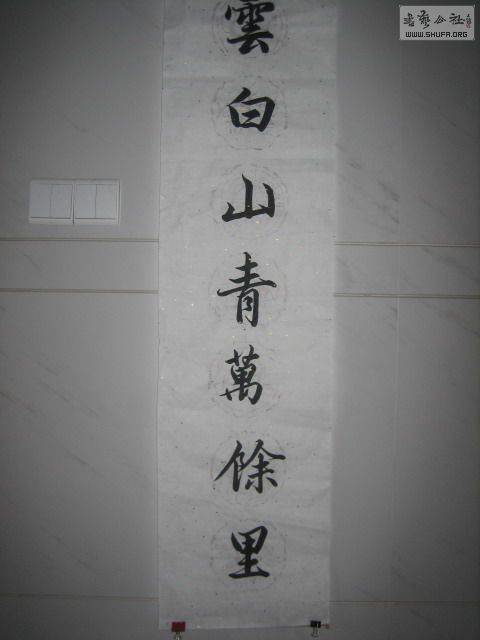 雲白山青萬餘里
書藝公社
WWW.SHUFA.ORG